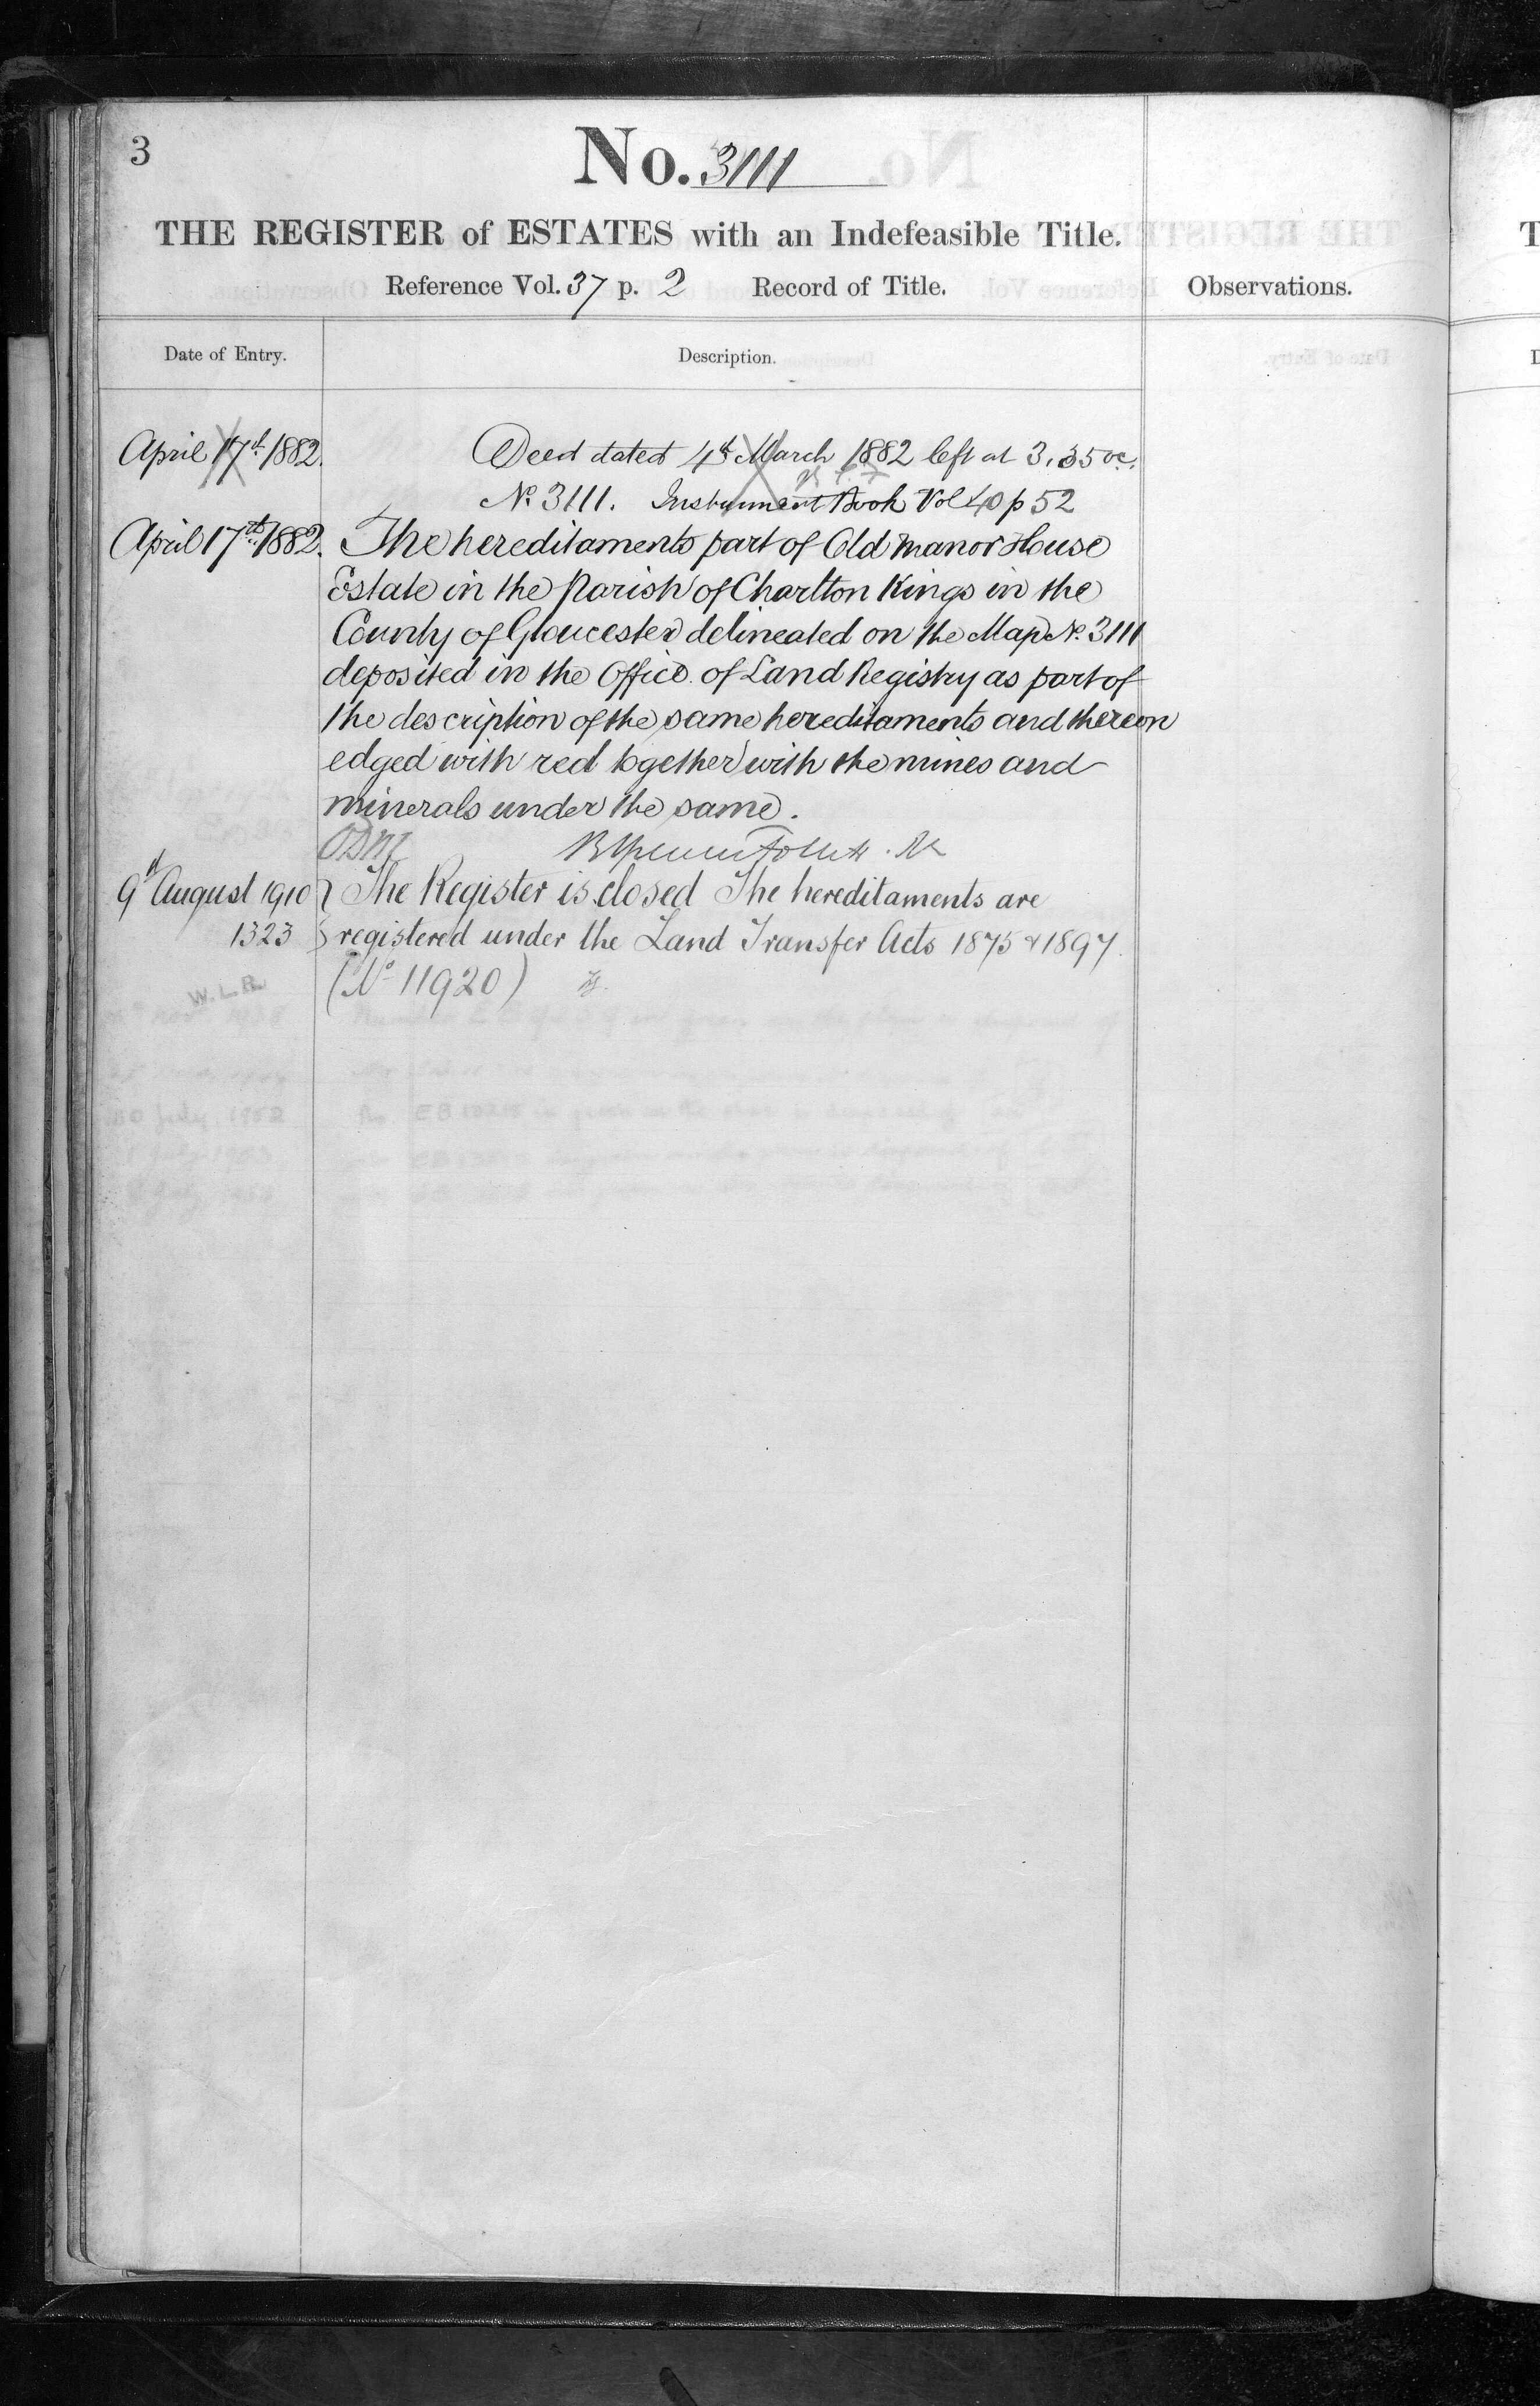 3
No. 3111
THE REGISTER of ESTATES with an Indefeasible Title.
Reference Vol. 37 p. 2 Record of Title.
Observations.
Date of Entry.
Description.
April 17th 1882.
Deed dated 4th March 1882 left at 3.35 oc.
No. 3111. Instrument Book Vol 40 p 52
April 17th 1882.
The hereditaments part of Old Manor House
Estate in the Parish of Charlton Kings in the
County of Gloucester delineated on the Map No. 3111
deposited in the Office of Land Registry as part of
the description of the same hereditaments and thereon
edged with red together with the mines and
minerals under the same.
9th August 1910
The Register is closed The hereditaments are
1323
registered under the Land Transfer Acts 1875 & 1897.
(No 11920)
W.L.R.